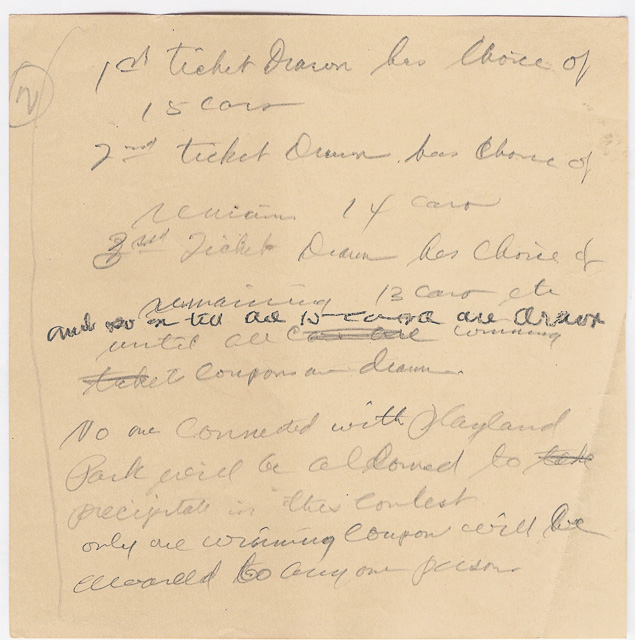 2
1st ticket Drawn has Choice of
15 cars
2nd ticket Drawn has Choice of
remains 14 cars
3rd Ticket Drawn has Choice of
remaining 13 cars etc
and so on till all 15 are drawn
until all winning
coupons are drawn.
No one Connected with Playland
Park will be allowed to
precipitate in this Contest
only one winning Coupon will be
awarded to any one person